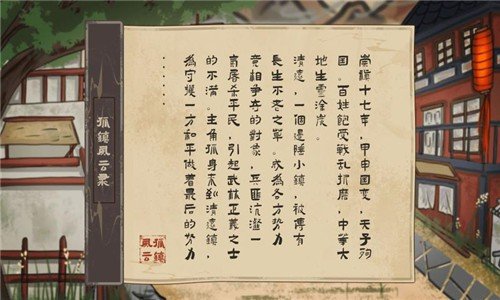 崇禎十七年，甲申国变，天子殉
国。百姓飽受戰乱折磨，中華大
地生灵涂炭。
清遠，一個邊陲小鎮，被傳有
長生不老之。成為各方势力
竞相爭夺的對象，兵匪沆瀣一
氣屠杀平民，引起武林正義之士
的不满。主角孤身來到清遠鎮，
為守護一方和平做着最后的努力
......
孤鎮風云录
孤鎮
風云